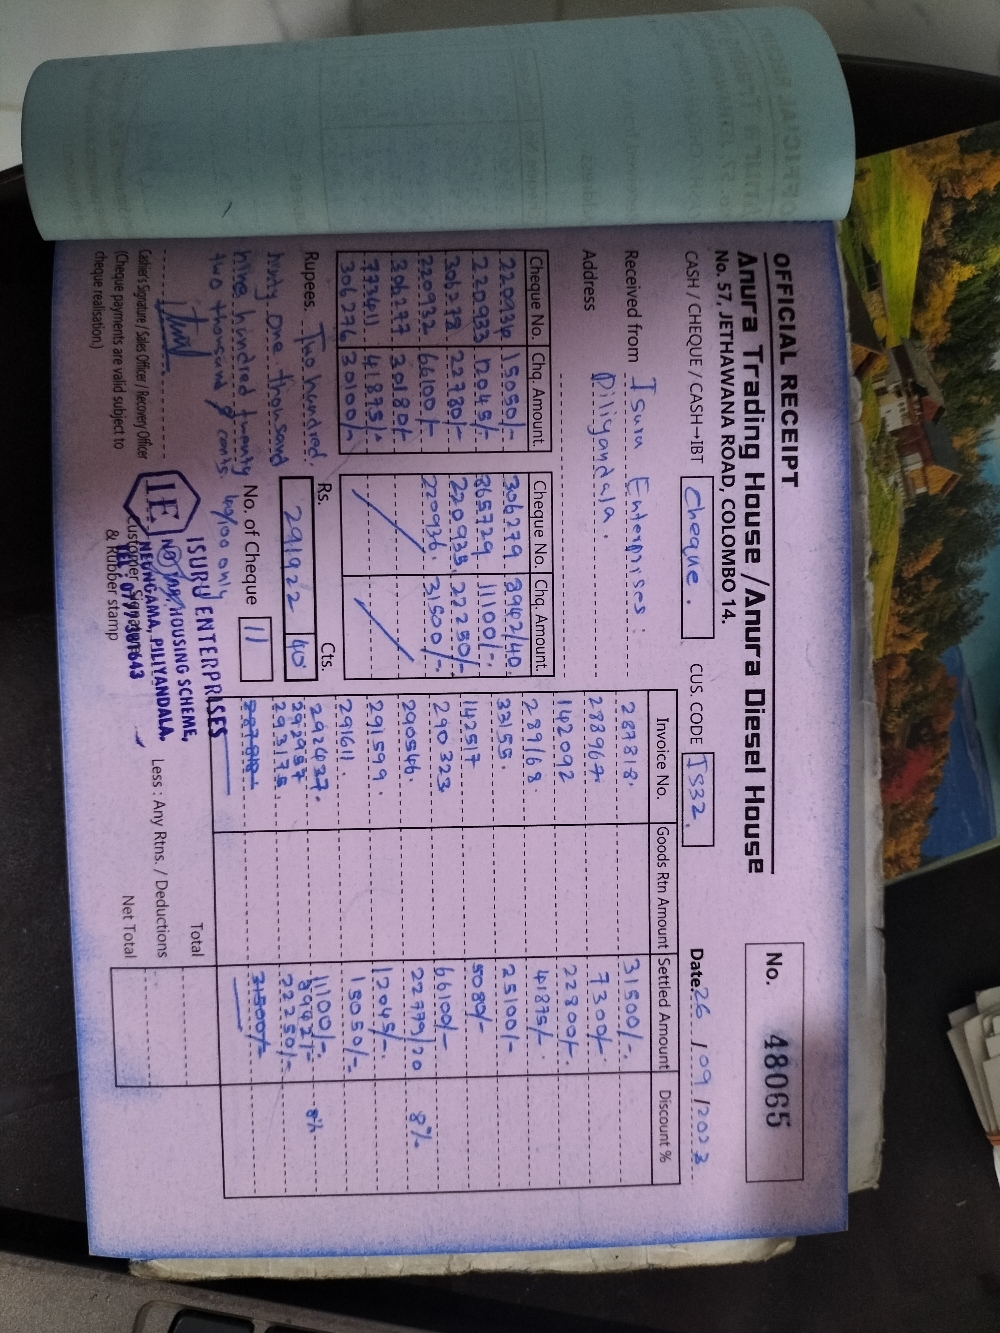 OFFICIAL RECEIPT
No. 48065
Anura Trading House / Anura Diesel House
No. 57, JETHAWANA ROAD, COLOMBO 14.
CASH / CHEQUE / CASH→IBT Cheque. CUS. CODE IS32. Date. 26 / 09 / 2023
Received from Isuru Enterprises.
Address Piliyandala.
Cheque No. Chq. Amount.
220934 15050/-
220933 12045/-
306278 22780/-
220932 66100/-
306277 30180/-
772461 41875/-
306276 30100/-
Cheque No. Chq. Amount.
306279 8942/40
865729 11100/-
220935 22250/-
220936 31500/-
Invoice No. Goods Rtn Amount Settled Amount Discount %
287818. 31500/-
288967 7300/-
142092 22800/-
289168. 41875/-
3355. 25100/-
142517 5080/-
290323 66100/-
290546. 22779/20 8%
291599. 12045/-
291611. 15050/-
292437. 11100/-
292957 8942/- 8%
293175 22250/-
287818 31500/-
Rupees. Two hundred
ninty one thousand
nine hundred twenty
two thousand & cents 40/100 only
Rs. Cts.
291922 40
No. of Cheque 11
Total
Less : Any Rtns. / Deductions
Net Total
Cashier's Signature / Sales Officer / Recovery Officer
(Cheque payments are valid subject to
cheque realisation.)
Customer Signature
& Rubber stamp
IE
ISURU ENTERPRISES
HOUSING SCHEME,
NEUNGAMA, PILIYANDALA.